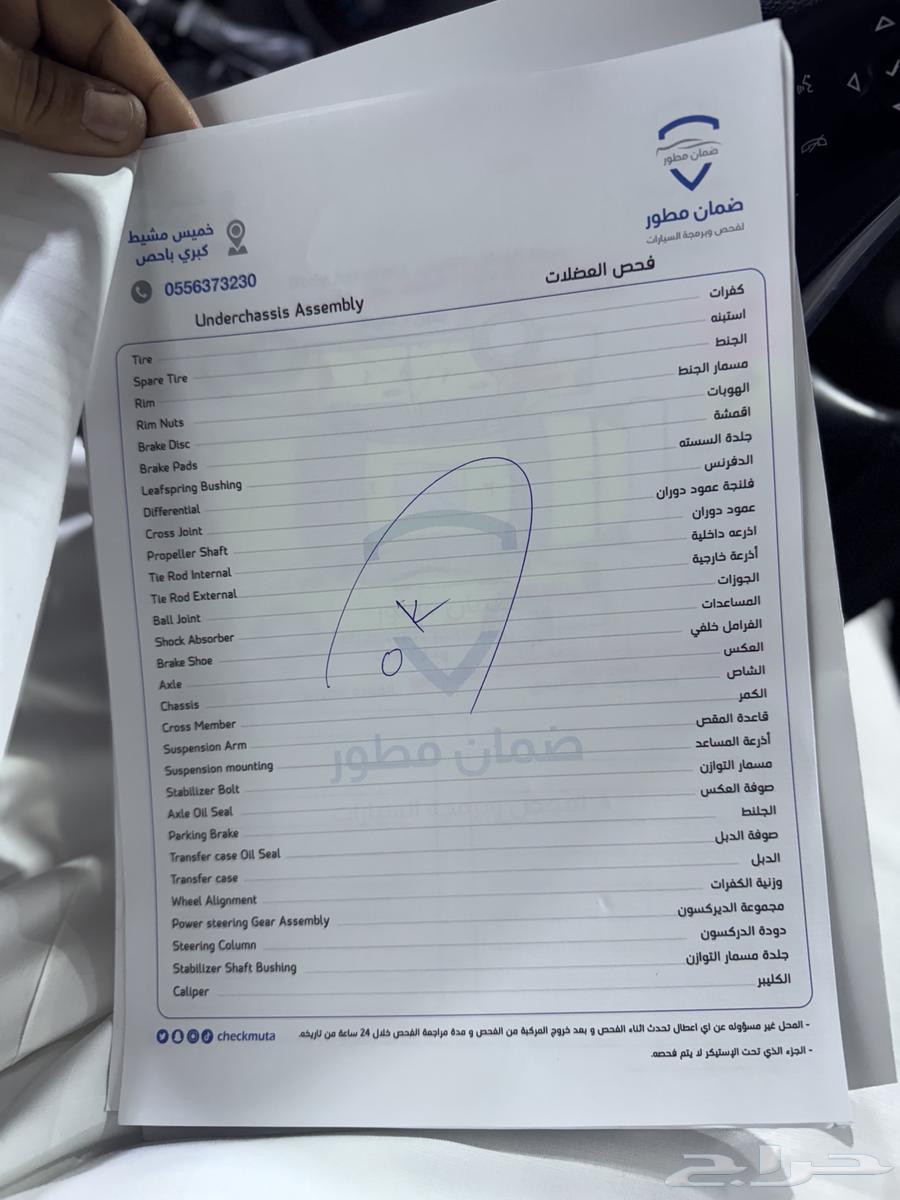 ضمان مطور
ضمان مطور
لفحص وبرمجة السيارات
خميس مشيط
كبري باحص
0556373230
Underchassis Assembly فحص العضلات
Tire كفرات
Spare Tire استبنه
Rim الجنط
Rim Nuts مسمار الجنط
Brake Disc الهوبات
Brake Pads اقمشة
Leafspring Bushing جلدة السسته
Differential الدفرنس
Cross Joint فلنجة عمود دوران
Propeller Shaft عمود دوران
Tie Rod Internal اذرعه داخلية
Tie Rod External أذرعة خارجية
Ball Joint الجوزات
Shock Absorber المساعدات
Brake Shoe الفرامل خلفي
Axle العكس
Chassis الشاص
Cross Member الكمر
Suspension Arm قاعدة المقص
Suspension mounting أذرعة المساعد
Stabilizer Bolt مسمار التوازن
Axle Oil Seal صوفة العكس
Parking Brake الجلنط
Transfer case Oil Seal صوفة الدبل
Transfer case الدبل
Wheel Alignment وزنية الكفرات
Power steering Gear Assembly مجموعة الديركسون
Steering Column دودة الدركسون
Stabilizer Shaft Bushing جلدة مسمار التوازن
Caliper الكليبر
OK
ضمان مطور
checkmuta
- المحل غير مسؤوله عن اي اعطال تحدث اثناء الفحص و بعد خروج المركبة من الفحص و مدة مراجعة الفحص خلال 24 ساعة من تاريخه.
- الجزء الذي تحت الإستيكر لا يتم فحصه.
حراج